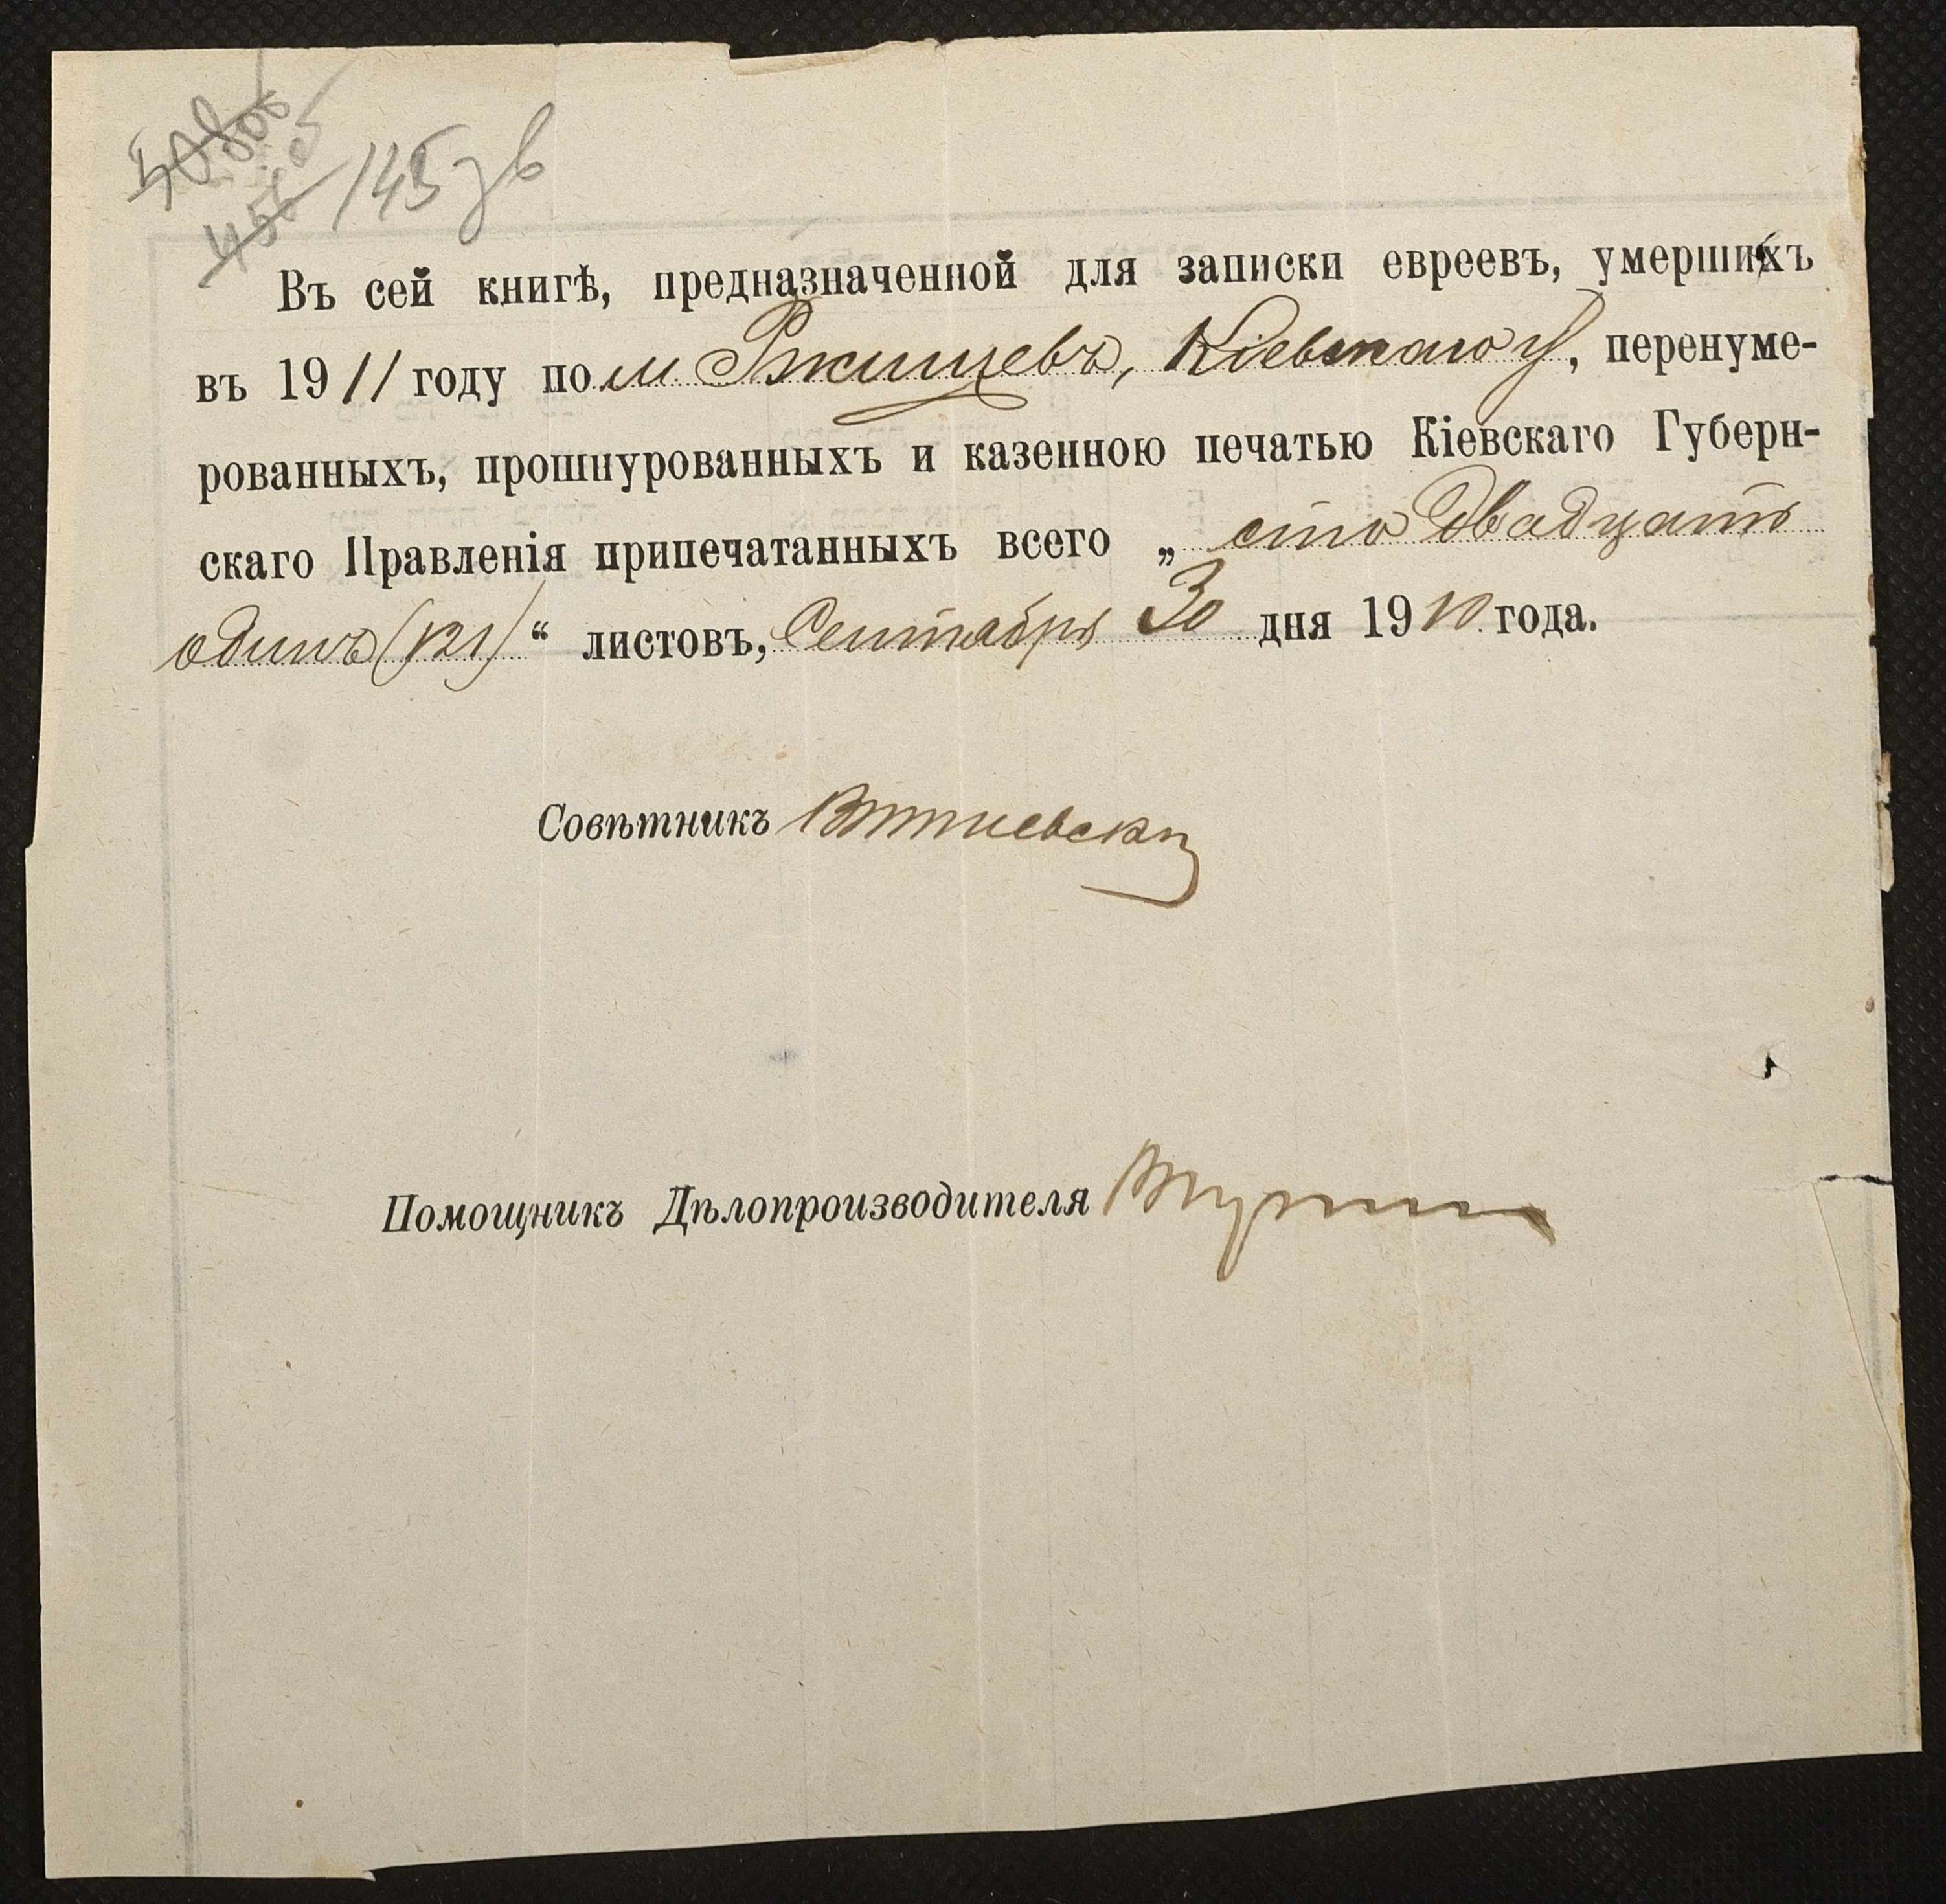 145 зв
Въ сей книгѣ, предназначенной для записки евреевъ, умершихъ
въ 1911 году по м Ржищевъ, Кіевскаго у, перенуме-
рованныхъ, прошнурованныхъ и казенною печатью Кіевскаго Губерн-
скаго Правленія припечатанныхъ всего „ сто двадцать
одинъ (121) “ листовъ, Сентября 30 дня 1910 года.
Совѣтникъ
Помощникъ Дѣлопроизводителя